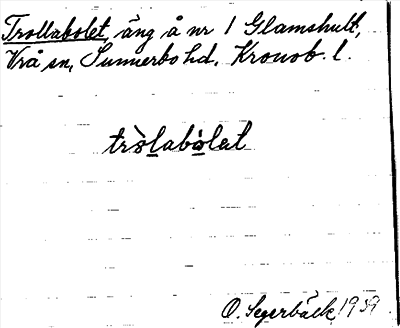 Trollabolet, äng å nr 1 Glamshult,
Vrå sn, Sunnerbo hd. Kronob. l.
tròlabòlet
O. Segerbäck 1939